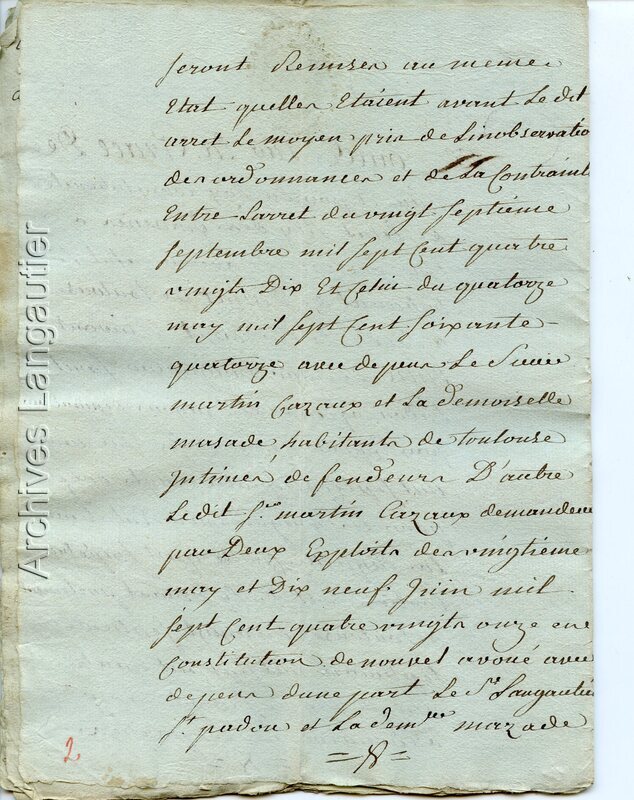 seront Remises au meme
Etat quelles Etaient avant Le dit
arret Le moyen pris de Linobservatio
des ordonnances et de La Contrainte
Entre Larret du vingt septième
septembre mil sept Cent quatre
vingts Dix Et Celui du quatorze
may mil sept Cent soixante-
quatorze avec depens Le Sieur
martin Cazaux et La demoiselle
masade habitants de toulouse
Intimés defendeurs D'autre
Le dit sr. martin Cazaux demandeur
par Deux Exploits des vingtième
may et Dix neuf Juin mil
sept Cent quatre vingts onze en
Constitution de nouvel avoué avec
depens dune part Le Sr. Langautié
St. padou et La demlle mazade
2
Archives Langautier